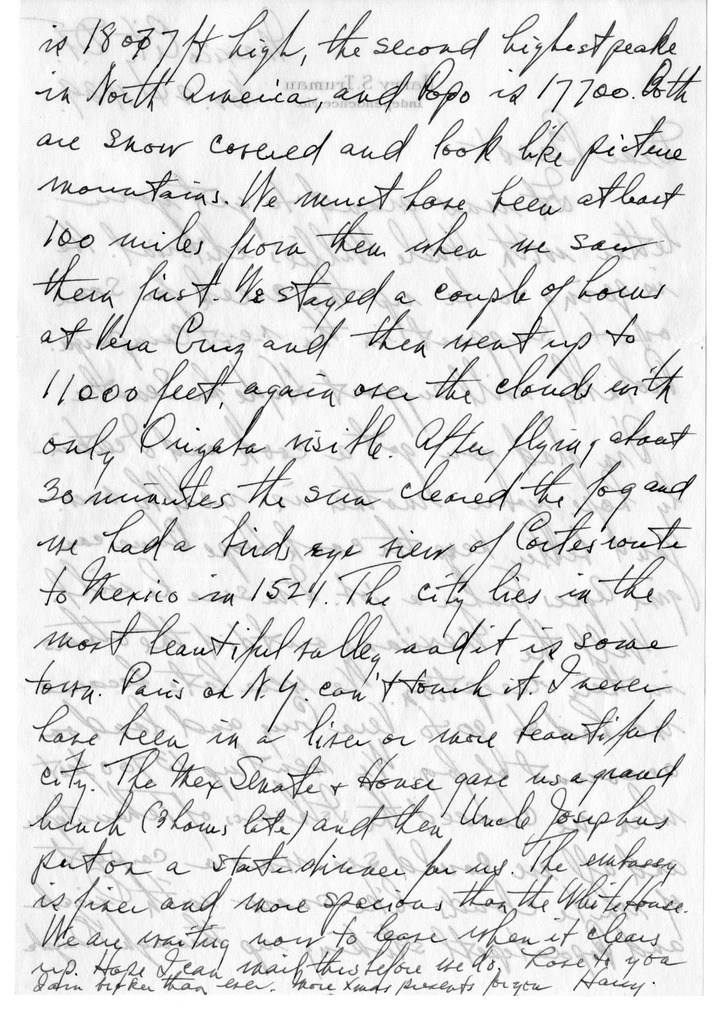 is 18077 ft high, the second highest peake
in North America, and Popo is 17700. Both
are snow covered and look like picture
mountains. We must have been at least
100 miles from them when we saw
them first. We stayed a couple of hours
at Vera Cruz and then went up to
11000 feet, again over the clouds with
only Orizaba visible. After flying about
30 minutes the sun cleared the fog and
we had a birds eye view of Cortes route
to Mexico in 1521. The city lies in the
most beautiful valley and it is some
town. Paris or N.Y. can't touch it. I never
have been in a liver or more beautiful
city. The Mex Senate & House gave us a grand
lunch (3 hours late) and then Uncle Josephus
put on a state dinner for us. The embassy
is finer and more spacious than the White House.
We are waiting now to leave when it clears
up. Hope I can mail this before we do. Love to you
I am than ever. More Xmas presents for you Harry.
Harry S. Truman
Independence, Mo.